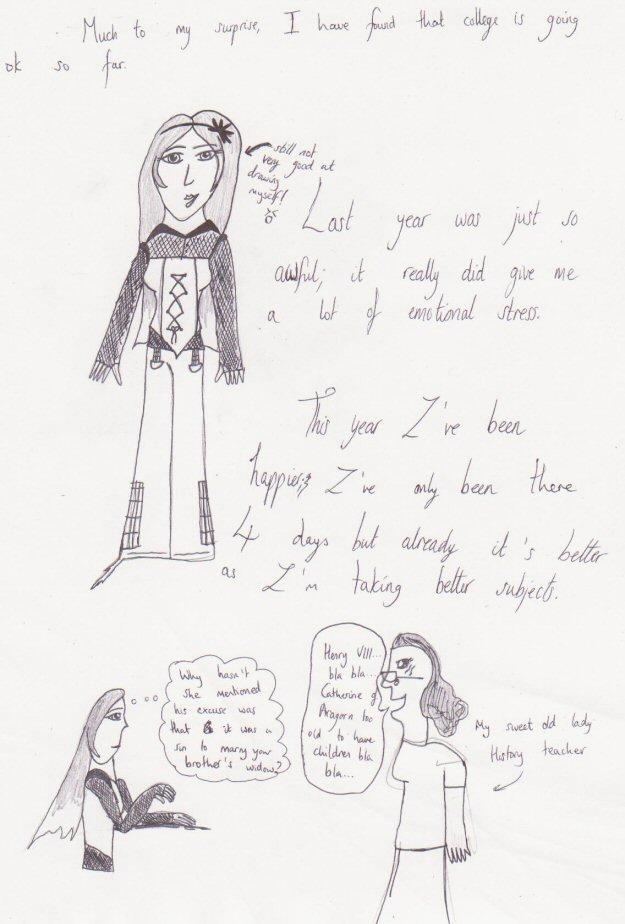 Much to my surprise, I have found that college is going
ok so far.
still not
very good at
drawing
myself!
Last year was just so
awful; it really did give me
a lot of emotional stress.
This year I've been
happier; I've only been there
4 days but already it's better
as I'm taking better subjects.
Why hasn't
she mentioned
his excuse was
that it was a
sin to marry your
brother's widow?
Henry VIII...
bla bla...
Catherine of
Aragorn too
old to have
children bla
bla...
My sweet old lady
History teacher